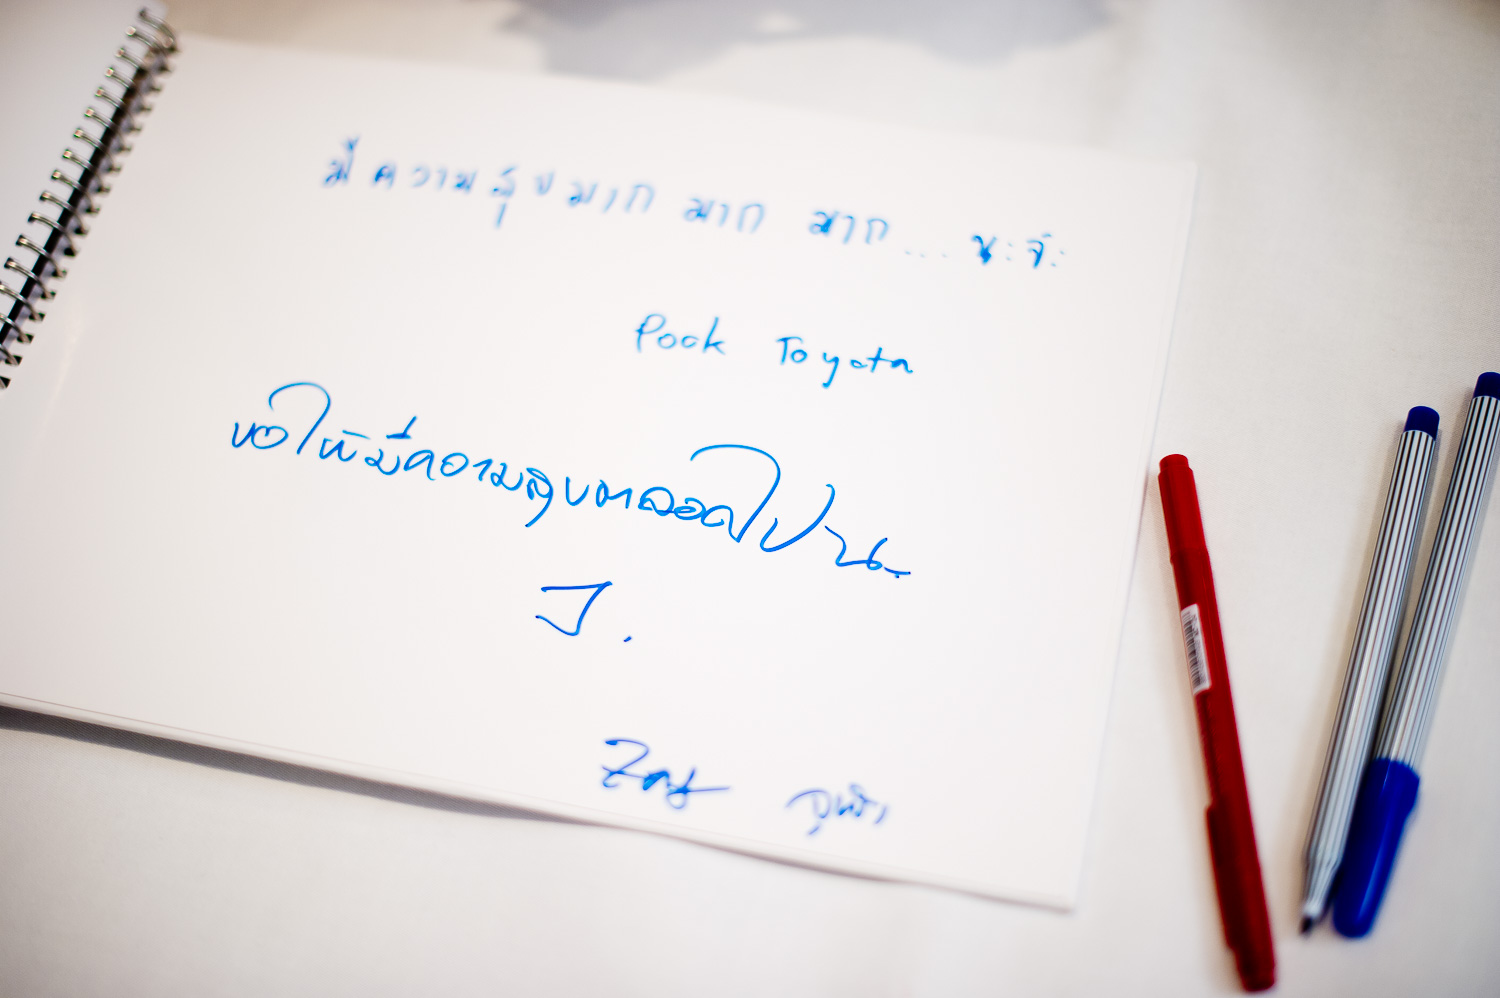 มีความสุขมาก มาก มาก... นะจ๊ะ
Pook Toyota
ขอให้มีความสุขตลอดไปนะ